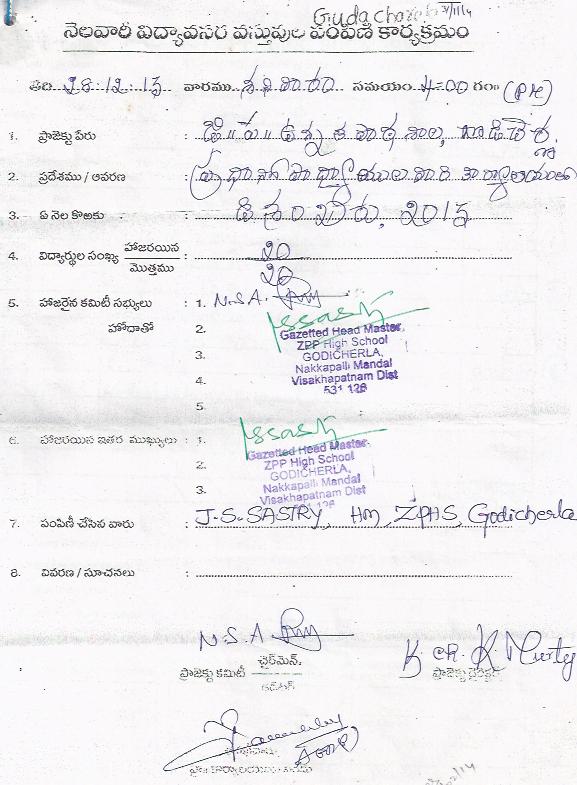 3/1/14
నెలవారి విద్యావసర వస్తువుల పంపిణీ కార్యక్రమం
తేది 28.12.13 వారము శనివారం సమయం 4-00 గం॥ (PM)
1. ప్రాజెక్టు పేరు : జి॥ప॥ ఉన్నత పాఠశాల, గొడిచెర్ల
2. ప్రదేశము / ఆవరణ : ప్రధానోపాధ్యాయుల వారి కార్యాలయము
3. ఏ నెల కొఱకు : డిసెంబరు, 2013
4. విద్యార్థుల సంఖ్య హాజరయిన : 20
మొత్తము 20
5. హాజరైన కమిటీ సభ్యులు : 1. N.S.A.
హోదాతో 2.
Gazetted Head Master,
ZPP High School
3. GODICHERLA,
Nakkapalli Mandal
4. Visakhapatnam Dist
531 126
5.
6. హాజరయిన ఇతర ముఖ్యులు : 1.
Gazetted Head Master,
2. ZPP High School
GODICHERLA,
3. Nakkapalli Mandal
Visakhapatnam Dist
7. పంపిణీ చేసిన వారు : J.S.SASTRY, HM, ZPHS, Godicherla
8. వివరణ / సూచనలు :
N.S.A
K. CH. K. Murty
ప్రాజెక్టు కమిటీ ఛైర్మెన్
ప్రాజెక్టు డైరెక్టర్